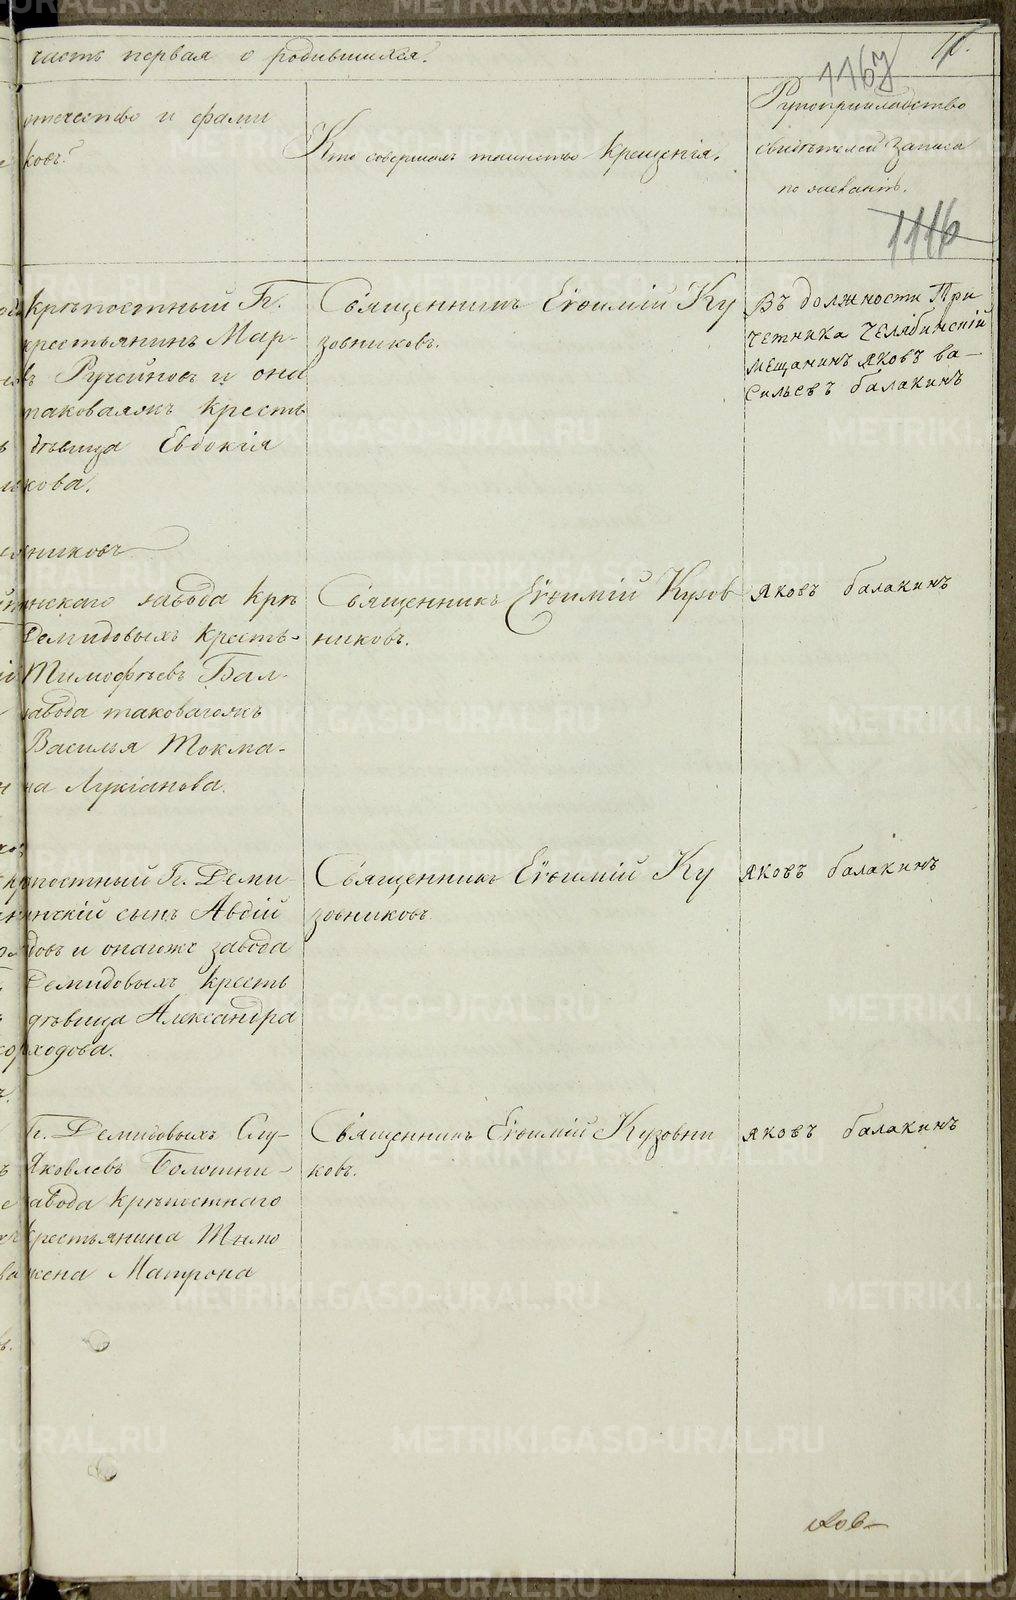 часть первая о родившихся.
1167
отечество и фами
ковъ?
Кто совершалъ таинство крещенія.
Рукоприкладство
свидѣтелей записи
по желанію.
1116
крѣпостный Гг.
крестьянинъ Мар-
въ Ручейновъ и она
таковаяжъ кресть
дѣвица Евдокія
кова.
Священникъ Евѳимій Ку
зовниковъ.
Въ должности При
четника Челябинскій
мещанинъ яковъ ва-
сильевъ балакинъ
никовъ
инскаго завода крѣ
Демидовыхъ кресть-
Тимофѣевъ Бал-
завода таковагожъ
Василья Токма-
на Лукіанова.
Священникъ Евѳимій Кузов
никовъ.
яковъ балакинъ
крѣпостный Гг. Деми-
янинскій сынъ Авдій
довъ и онагожъ завода
Демидовыхъ кресть
дѣвица Александра
ходова.
Священникъ Евѳимій Ку
зовниковъ
яковъ балакинъ
Гг. Демидовыхъ Слу-
Яковлевъ Болотни-
завода крѣпостнаго
крестьянина Тимо
жена Матрона
Священникъ Евѳимій Кузовни
ковъ.
яковъ балакинъ
METRIKI.GASO-URAL.RU